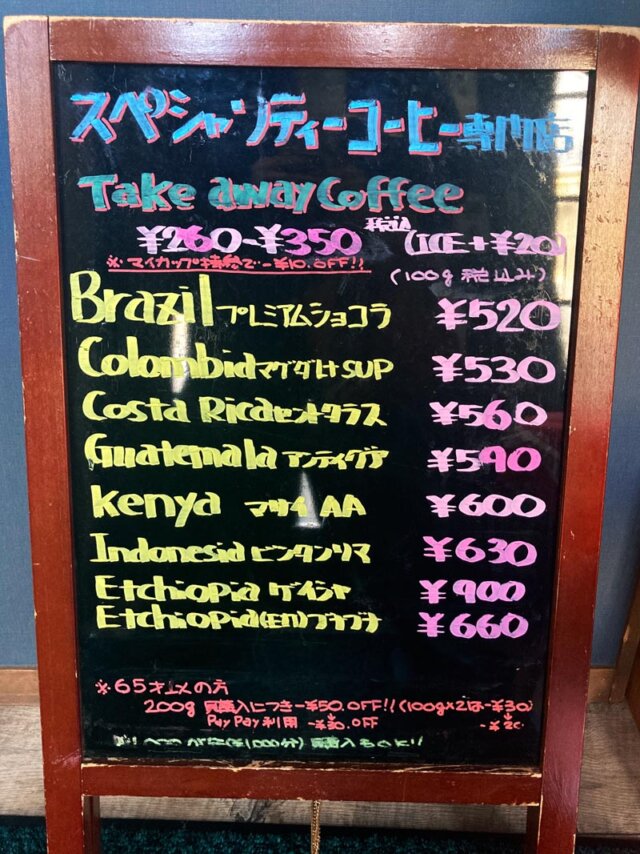 スペシャリティーコーヒー専門店
Take away Coffee
¥260-¥350 税込 (ICE+¥20)
※マイカップ持参で-¥10.OFF!!
(100g 税込み)
Brazil プレミアムショコラ ¥520
Colombia マグダレナ SUP ¥530
Costa Rica セントタラス ¥560
Guatemala アンティグア ¥590
Kenya マサイ AA ¥600
Indonesia ビンタンリマ ¥630
Etchiopia ゲイシャ ¥900
Etchiopia ¥660
※65才以上の方
200g 購入につき-¥50.OFF!! (100g×2は-¥30)
PayPay利用 -¥30.OFF -¥20
購入もOK!!